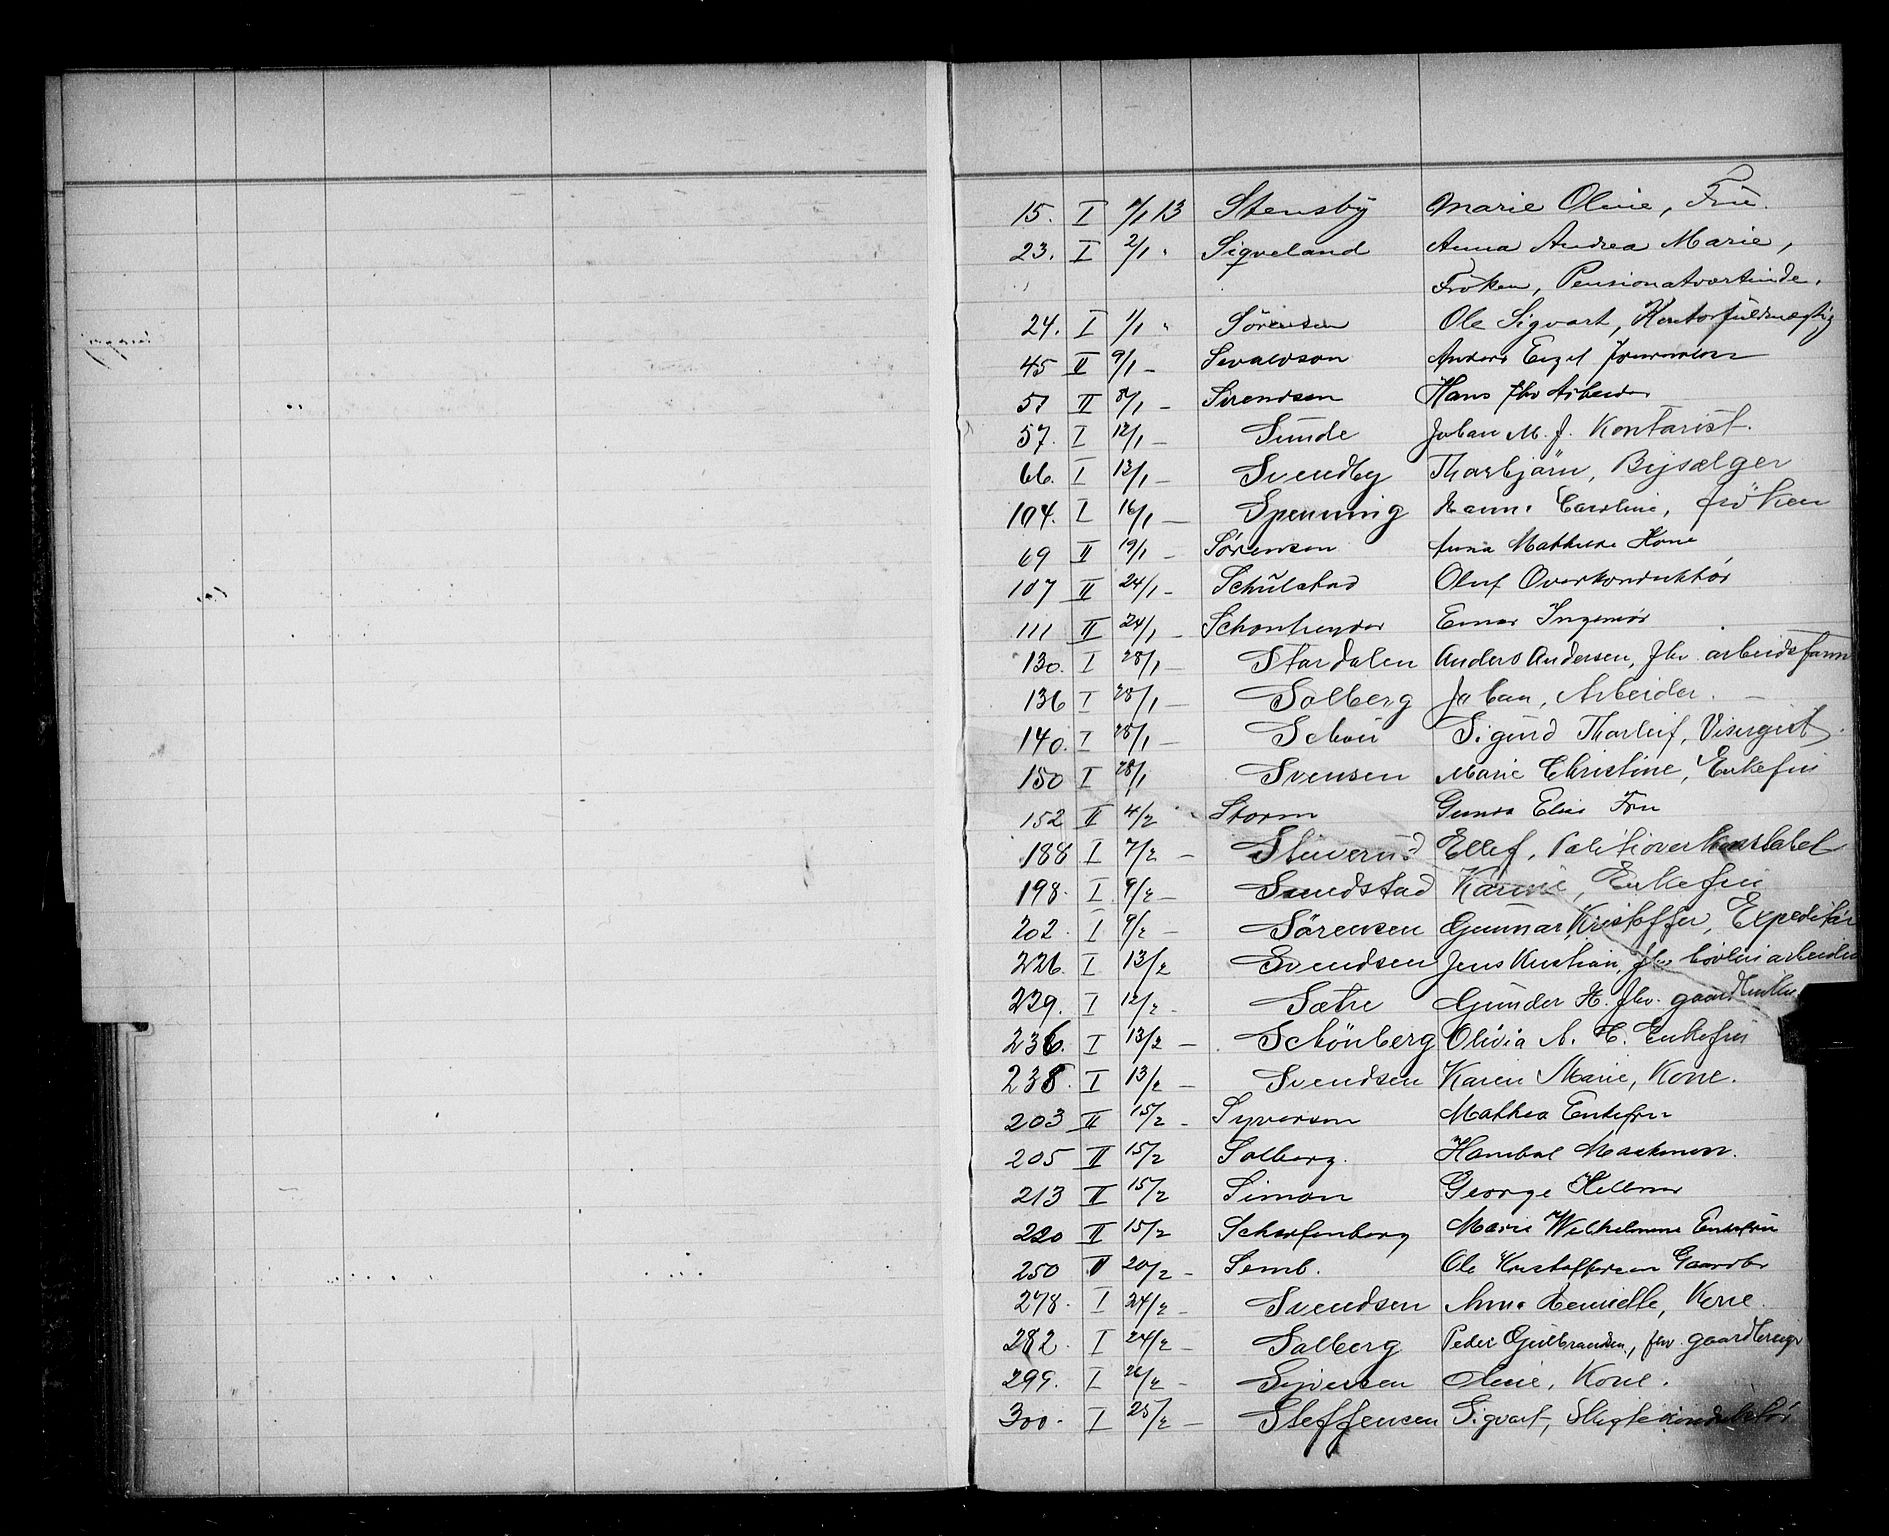 15. I 1/1 13 Stensby Marie Oline, Frue.
23. I 2/1 " Sigveland Anna Andrea Marie,
Frøken, Pensionatvertinde.
24. I 1/1 " Sørensen Ole Sigvart, Kontorfuldmægtig
45 II 9/1 - Sevaldson Anders Engel
51 II 8/1 - Sirendsen Hans fhv Arbeider
57. I 12/1 - Sunde Johan M. J. Kontorist.
66. I 13/1 - Svendby Thorbjörn, Bysælger
104. I 16/1 - Spenning Hanna Caroline, fröken
69 II 19/1 - Sørensen Anna Mathilde Kone
107 II 24/1 - Schulstad Oluf Overkonduktør
111 II 24/1 - Schonheyder Einar Ingeniør
130. I 28/1 - Stardalen Anders Andersen, fhv. arbeidsform
136 I 28/1 - Solberg Johan, Arbeider.
140. I 28/1 - Schou Sigurd Thorleif, Visergut.
150 I 28/1 Svensen Marie Christine, Enkefru
152 II 4/2 " Storm Gunda Elise Fru
188 I 7/2 - Stuverud Ellef, Politioverkonstabel
198. I 9/2 - Sundstad Karine, Enkefru
202. I 9/2 - Sörensen Gunnar Kristoffer, Expeditör
226. I 13/2 Svendsen Jens Kristian, fhv arbeider
229. I 12/2 - Sætre Gunder H. fhv. gaardbruker
236. I 13/2 - Schönberg Olivia A. C. Enkefru
238. I 13/2 - Svendsen Karen Marie, Kone.
203 II 15/2 - Syversen Mathea Enkefru
205 II 15/2 Solberg. Hanibal Maskinm.
213 II 15/2 Simon George Hellmer
220 II 15/2 Scharfenberg Marie Wilhelmine Enkefru
250 II 20/2 - Semb. Ole Kristoffersen Gaardbr
278. I 24/2 - Svendsen Anna Henriette, Kone.
282. I 24/2 - Solberg Peder Gulbrandsen, fhv. gaardbruger
299. I 26/2 - Syversen Oline, Kone.
300. I 25/2 - Steffensen Sigvart, Slugtekonduktör